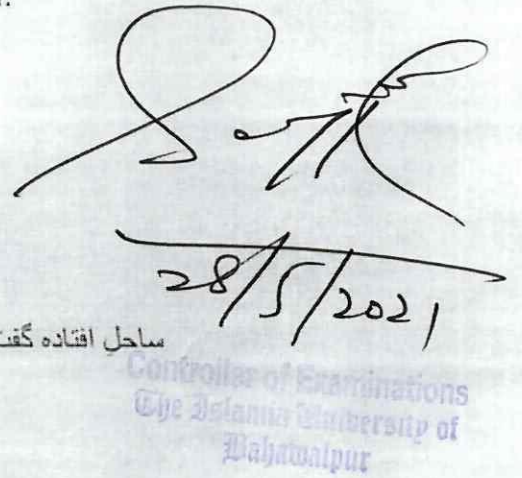 28/5/2021
ساحلِ افتاده گفت
Controller of Examinations
The Islamia University of
Bahawalpur